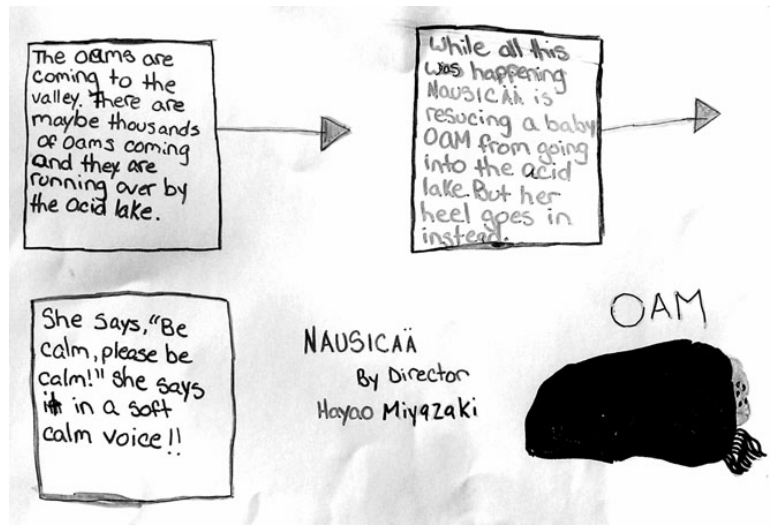 The oams are
coming to the
valley. There are
maybe thousands
of oams coming
and they are
running over by
the acid lake.
While all this
was happening
NAUSICÄÄ is
resucing a baby
OAM from going
into the acid
lake. But her
heel goes in
instead.
She says, "Be
calm, please be
calm!" She says
it in a soft
calm voice!!
NAUSICAÄ
By Director
Hayao Miyazaki
OAM